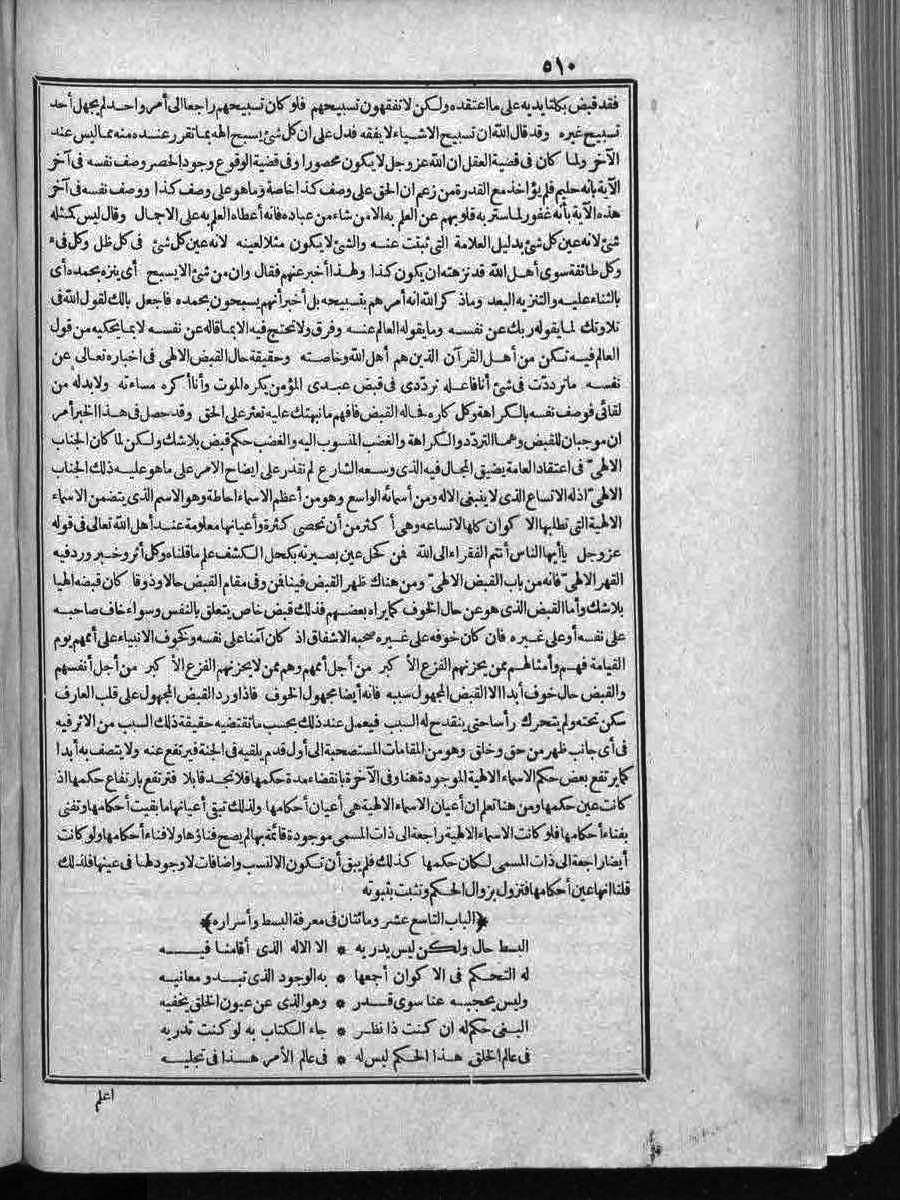 ٥١٠
فقد قبض بكلتا يديه على ما اعتقده ولكن لا تفقهون تسبيحهم فلو كان تسبيحهم راجعا الى أمر واحد لم يجهل أحد
تسبيح غيره وقد قال الله ان تسبيح الاشياء لا يفقه فدل على ان كل شئ يسبح الهه بما تقرر عنده منه مما ليس عند
الآخر ولما كان فى قضية العقل ان الله عز وجل لا يكون محصورا وفى قضية الوقوع وجود الحصر وصف نفسه فى آخر
الآية بانه حليم فلم يؤاخذ مع القدرة من زعم ان الحق على وصف كذا خاصة وما هو على وصف كذا ووصف نفسه فى آخر
هذه الآية بأنه غفور لما ستر به قلوبهم عن العلم به الا من شاء من عباده فانه أعطاه العلم به على الاجمال وقال ليس كمثله
شئ لانه عين كل شئ بدليل العلامة التى ثبتت عنه والشئ لا يكون مثلا لعينه لانه عين كل شئ فى كل ظل وكل فىء
وكل طائفة سوى أهل الله قد نزهته ان يكون كذا ولهذا أخبر عنهم فقال وان من شئ الا يسبح أى ينزه بحمده أى
بالثناء عليه والتنزيه البعد وما ذكر الله انه أمرهم بتسبيحه بل أخبر أنهم يسبحون بحمده فاجعل بالك لقول الله فى
تلاوتك لما يقوله ربك عن نفسه وما يقوله العالم عنه وفرق ولا تحتج فيه الا بما قاله عن نفسه لا بما يحكيه من قول
العالم فيه تكن من أهل القرآن الذين هم أهل الله وخاصته وحقيقة حال القبض الالهى فى اخباره تعالى عن
نفسه ما ترددت فى شئ أنا فاعله ترددى فى قبض عبدى المؤمن يكره الموت وأنا أكره مساءته ولا بد له من
لقائى فوصف نفسه بالكراهة وكل كاره فحاله القبض فافهم ما نبهتك عليه تعثر على الحق وقد حصل فى هذا الخبر أمر
ان موجبان للقبض وهما التردد والكراهة والغضب المنسوب اليه والغضب حكم قبض بلا شك ولكن لما كان الجناب
الالهىّ فى اعتقاد العامة يضيق المجال فيه الذى وسعه الشارع لم نقدر على ايضاح الامر على ما هو عليه ذلك الجناب
الالهىّ اذ له الاتساع الذى لا ينبغى الا له ومن أسمائه الواسع وهو من أعظم الاسماء احاطة وهو الاسم الذى يتضمن الاسماء
الالهية التى تطلبها الاكوان كلها لاتساعه وهى أكثر من أن تحصى كثرة وأعيانها معلومة عند أهل الله تعالى فى قوله
عز وجل ياأيها الناس أنتم الفقراء الى الله فمن كحل عين بصيرته بكحل الكشف علم ما قلناه وكل أثر وخبر ورد فيه
القهر الالهىّ فانه من باب القبض الالهىّ ومن هناك ظهر القبض فينا فمن وفى مقام القبض حالا وذوقا كان قبضه الهيا
بلا شك وأما القبض الذى هو عن حال الخوف كما يراه بعضهم فذلك قبض خاص يتعلق بالنفس وسواء خاف صاحبه
على نفسه أو على غيره فان كان خوفه على غيره صحبه الاشفاق اذ كان آمنا على نفسه وكخوف الانبياء على أممهم يوم
القيامة فهم وأمثالهم ممن يحزنهم الفزع الأكبر من أجل أممهم وهم ممن لا يحزنهم الفزع الأكبر من أجل أنفسهم
والقبض حال خوف أبدا الا القبض المجهول سببه فانه أيضا مجهول الخوف فاذا ورد القبض المجهول على قلب العارف
سكن تحته ولم يتحرك رأسا حتى ينقدح له السبب فيعمل عند ذلك بحسب ما تقتضيه حقيقة ذلك السبب من الاثر فيه
فى أى جانب ظهر من حق وخلق وهو من المقامات المستصحبة الى أول قدم يلقيه فى الجنة فيرتفع عنه ولا يتصف به أبدا
كما يرتفع بعض حكم الاسماء الالهية الموجودة هنا وفى الآخرة بانقضاء مدة حكمها فلا تجد قابلا فترتفع بارتفاع حكمها اذ
كانت عين حكمها ومن هنا تعلم ان أعيان الاسماء الالهية هى أعيان أحكامها ولذلك تبقى أعيانها ما بقيت أحكامها وتفنى
بفناء أحكامها فلو كانت الاسماء الالهية راجعة الى ذات المسمى موجودة قائمة بها لم يصح فناؤها ولا فناء أحكامها ولو كانت
أيضا راجعة الى ذات المسمى لكان حكمها كذلك فلم يبق أن تكون الا لنسب واضافات لا وجود لها فى عينها فلذلك
قلنا انها عين أحكامها فتزول بزوال الحكم وتثبت بثبوته
﴿الباب التاسع عشر ومائتان فى معرفة البسط وأسراره﴾
البسط حال ولكن ليس يدريه * الا الاله الذى أقامنا فيه
له التحكم فى الاكوان أجمعها * به الوجود الذى تبدو معانيه
وليس يحجبه عنا سوى قدر * وهو الذى عن عيون الخلق يخفيه
البغى حكم له ان كنت ذا نظر * جاء الكتاب به لو كنت تدريه
فى عالم الخلق هذا الحكم ليس له * فى عالم الأمر هذا فى تجليه
اعلم